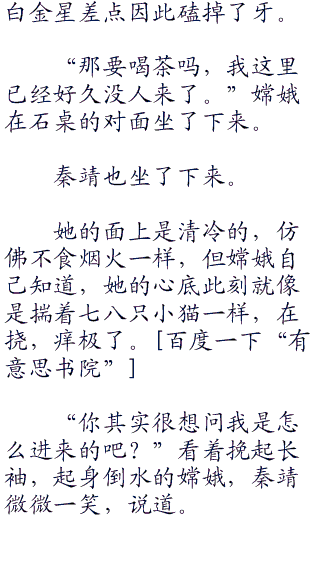 白金星差点因此磕掉了牙。
“那要喝茶吗，我这里
已经好久没人来了。”嫦娥
在石桌的对面坐了下来。
秦靖也坐了下来。
她的面上是清冷的，仿
佛不食烟火一样，但嫦娥自
己知道，她的心底此刻就像
是揣着七八只小猫一样，在
挠，痒极了。[百度一下“有
意思书院”]
“你其实很想问我是怎
么进来的吧？”看着挽起长
袖，起身倒水的嫦娥，秦靖
微微一笑，说道。